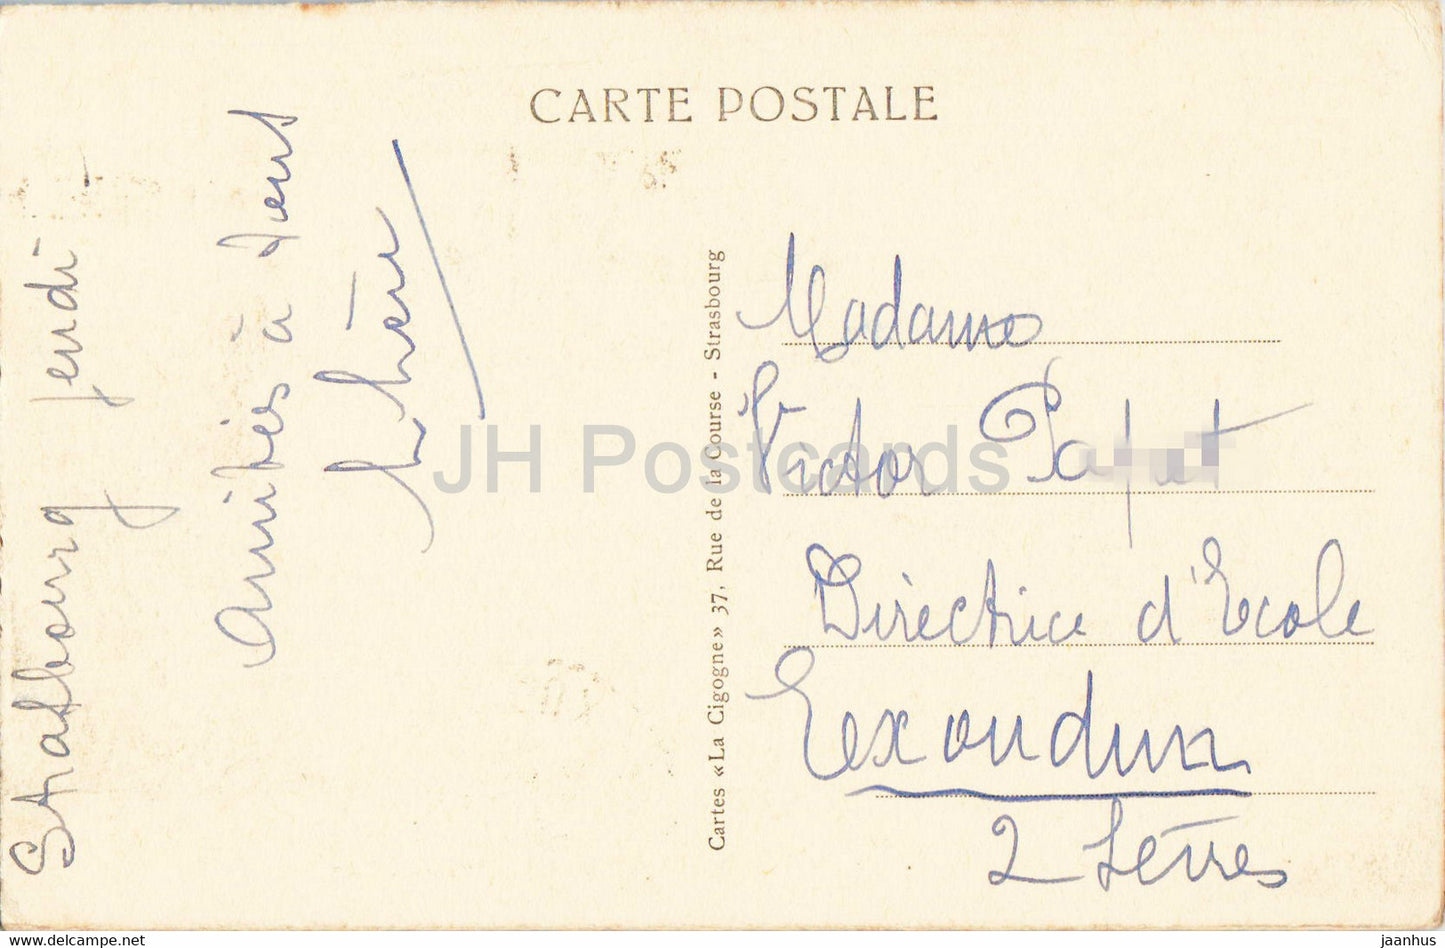 CARTE POSTALE
Strasbourg jeudi
Amitiés à
Cartes «La Cigogne» 37, Rue de la Course - Strasbourg
Madame
Victor
Directrice d'Ecole
Exoudun
2 Sèvres
JH Postcards
www.delcampe.net
jaanhus